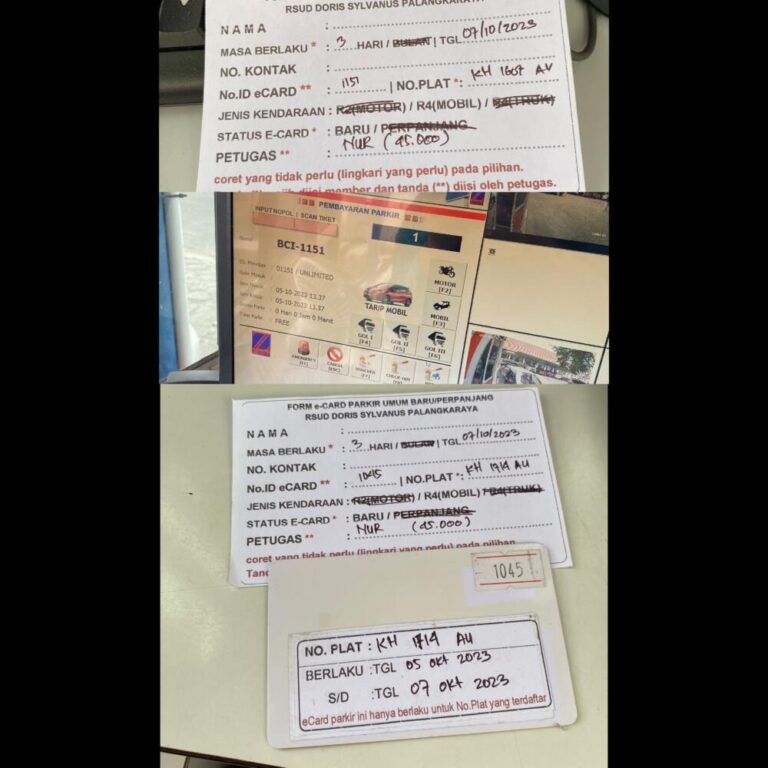 RSUD DORIS SYLVANUS PALANGKARAYA
NAMA :
MASA BERLAKU * : 3 HARI / BULAN | TGL 07/10/2023
NO. KONTAK :
No.ID eCARD ** : 1151 | NO.PLAT *: KH 1607 AU
JENIS KENDARAAN : R2(MOTOR) / R4(MOBIL) / R4(TRUK)
STATUS E-CARD * : BARU / PERPANJANG
PETUGAS ** : NUR (45.000)
coret yang tidak perlu (lingkari yang perlu) pada pilihan.
member dan tanda (**) diisi oleh petugas.
PEMBAYARAN PARKIR
INPUT NOPOL | SCAN TIKET
1
BCI-1151
01151 / UNLIMITED
05-10-2023 13.27
05-10-2023 13.27
0 Hari 0 Jam 0 Menit
FREE
TARIP MOBIL
MOTOR
[F2]
MOBIL
[F3]
GOL I
[F4]
GOL II
[F5]
GOL III
[F6]
FORM e-CARD PARKIR UMUM BARU/PERPANJANG
RSUD DORIS SYLVANUS PALANGKARAYA
NAMA :
MASA BERLAKU * : 3 HARI / BULAN | TGL 07/10/2023
NO. KONTAK :
No.ID eCARD ** : 1045 | NO.PLAT *: KH 1714 AU
JENIS KENDARAAN : R2(MOTOR) / R4(MOBIL) / R4(TRUK)
STATUS E-CARD * : BARU / PERPANJANG
PETUGAS ** : NUR (45.000)
coret yang tidak perlu (lingkari yang perlu) pada pilihan.
1045
NO. PLAT : KH 1714 AU
BERLAKU : TGL 05 OKT 2023
S/D : TGL 07 OKT 2023
eCard parkir ini hanya berlaku untuk No.Plat yang terdaftar